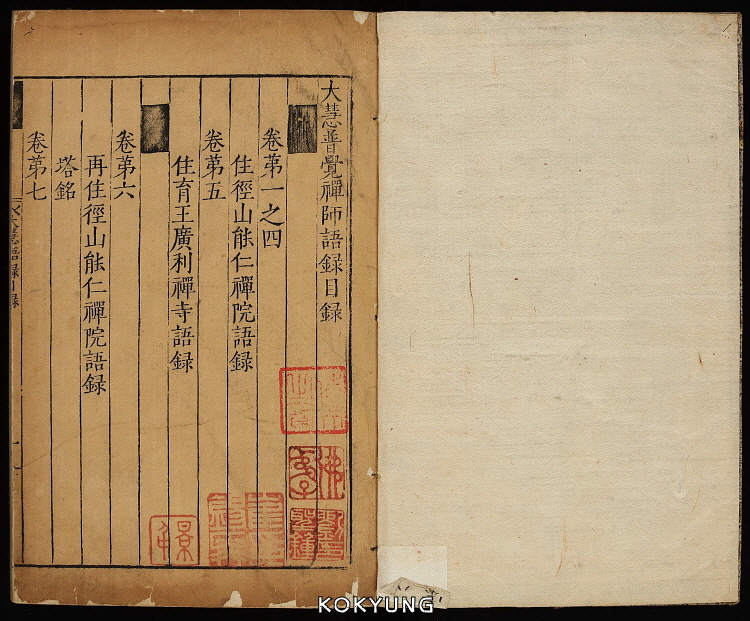 大慧普覺禪師語録目録
卷苐一之四
住徑山能仁禪院語録
卷苐五
住育王廣利禪寺語録
卷苐六
再住徑山能仁禪院語録
塔銘
卷苐七
KOKYUNG